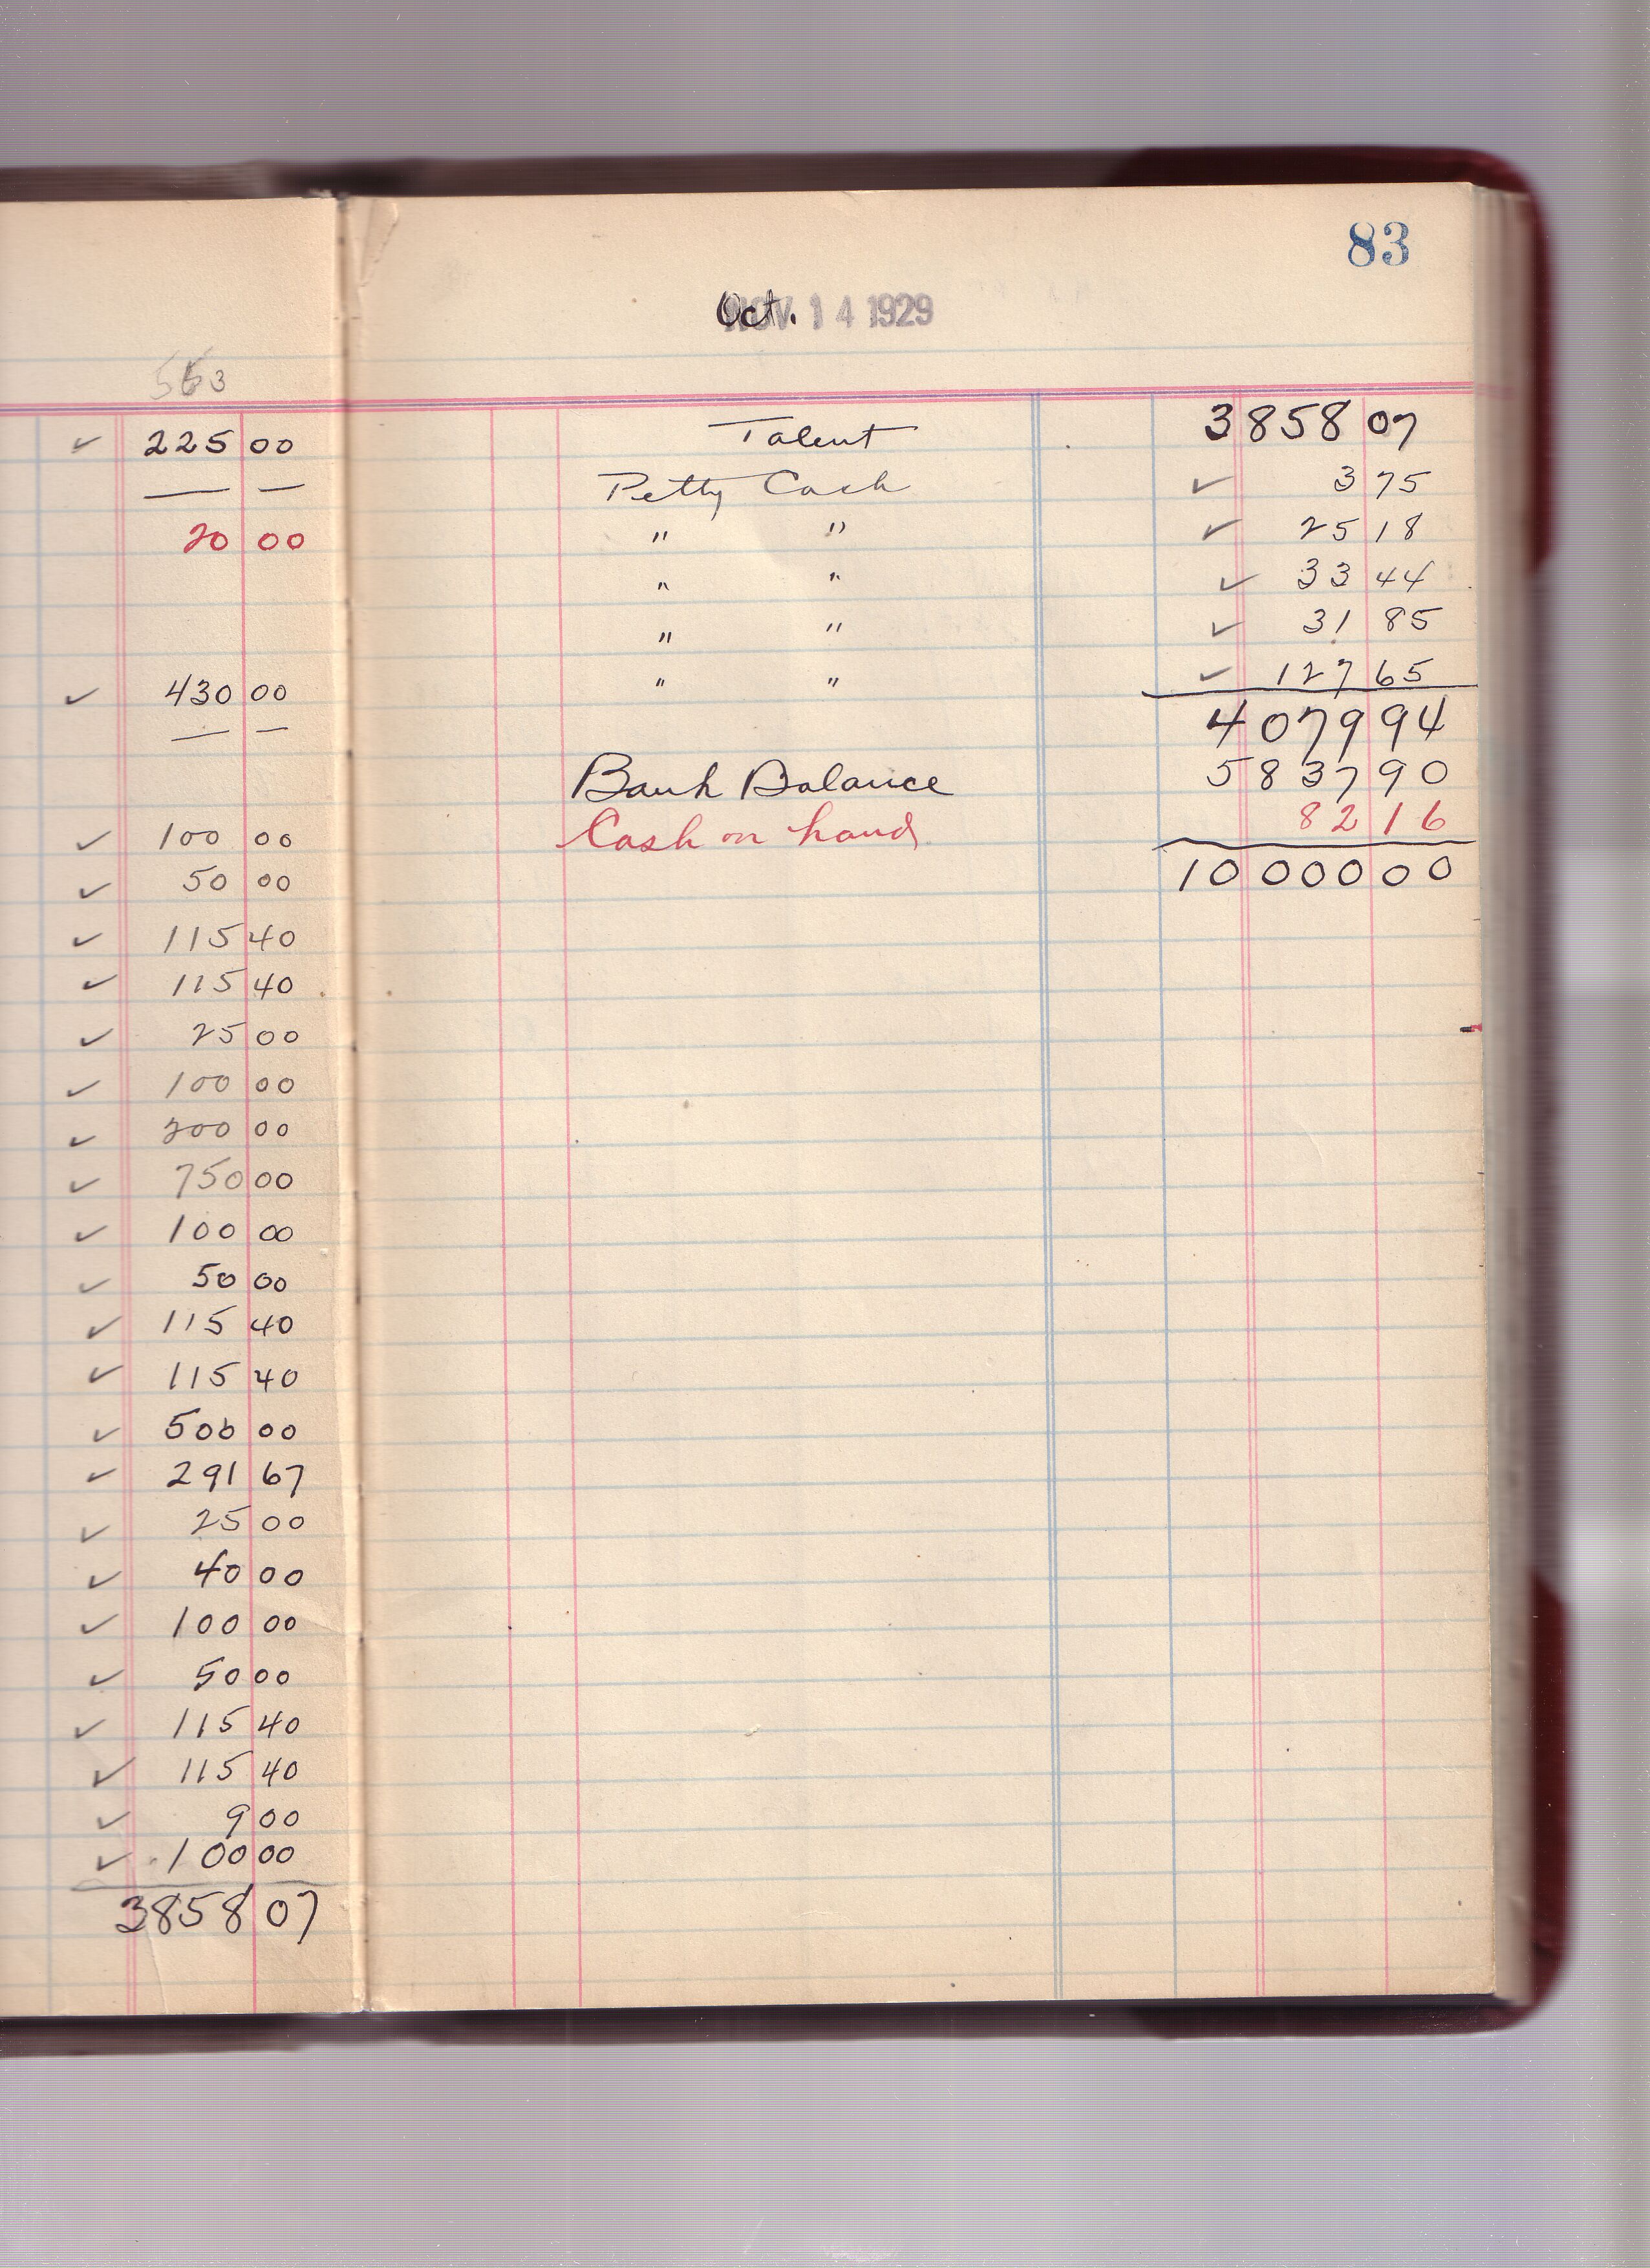 563
225 00
20 00
430 00
100 00
50 00
115 40
115 40
25 00
100 00
200 00
750 00
100 00
50 00
115 40
115 40
500 00
291 67
25 00
40 00
100 00
50 00
115 40
115 40
9 00
100 00
3858 07
83
Oct. NOV. 14 1929
Talent 3858 07
Petty Cash 3 75
" " 25 18
" " 33 44
" " 31 85
" " 127 65
4079 94
Bank Balance 5837 90
Cash on hand 82 16
10000 00